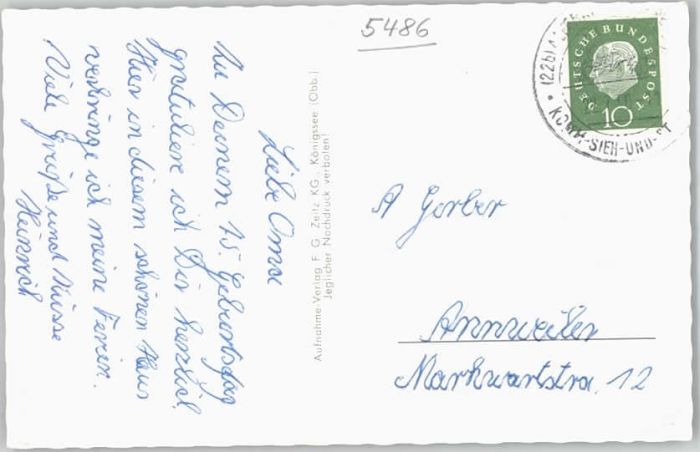 5486
Liebe Oma
Zu Deinem 75. Geburtstag
gratuliere ich Dir herzlich.
Hier in diesem schönen Haus
verbringe ich meine Ferien.
Viele Grüße und Küsse
Heinrich
Aufnahme-Verlag F. G. Zeitz KG., Königssee (Obb.)
Jeglicher Nachdruck verboten!
DEUTSCHE BUNDESPOST
10
(22b)
KOMM-SIEH-UND
A Gerber
Annweiler
Markwartstra. 12